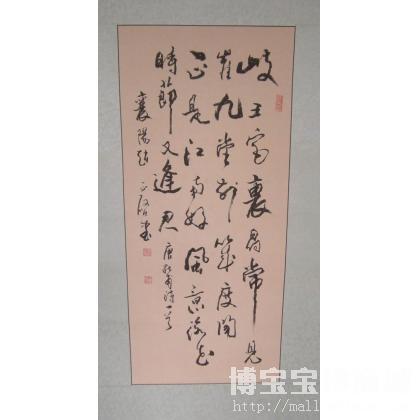 岐王宅裏尋常見
崔九堂前幾度聞
正是江南好風景落花
時節又逢君 唐杜甫詩一首
襄陽趙
書
博宝
http://mall